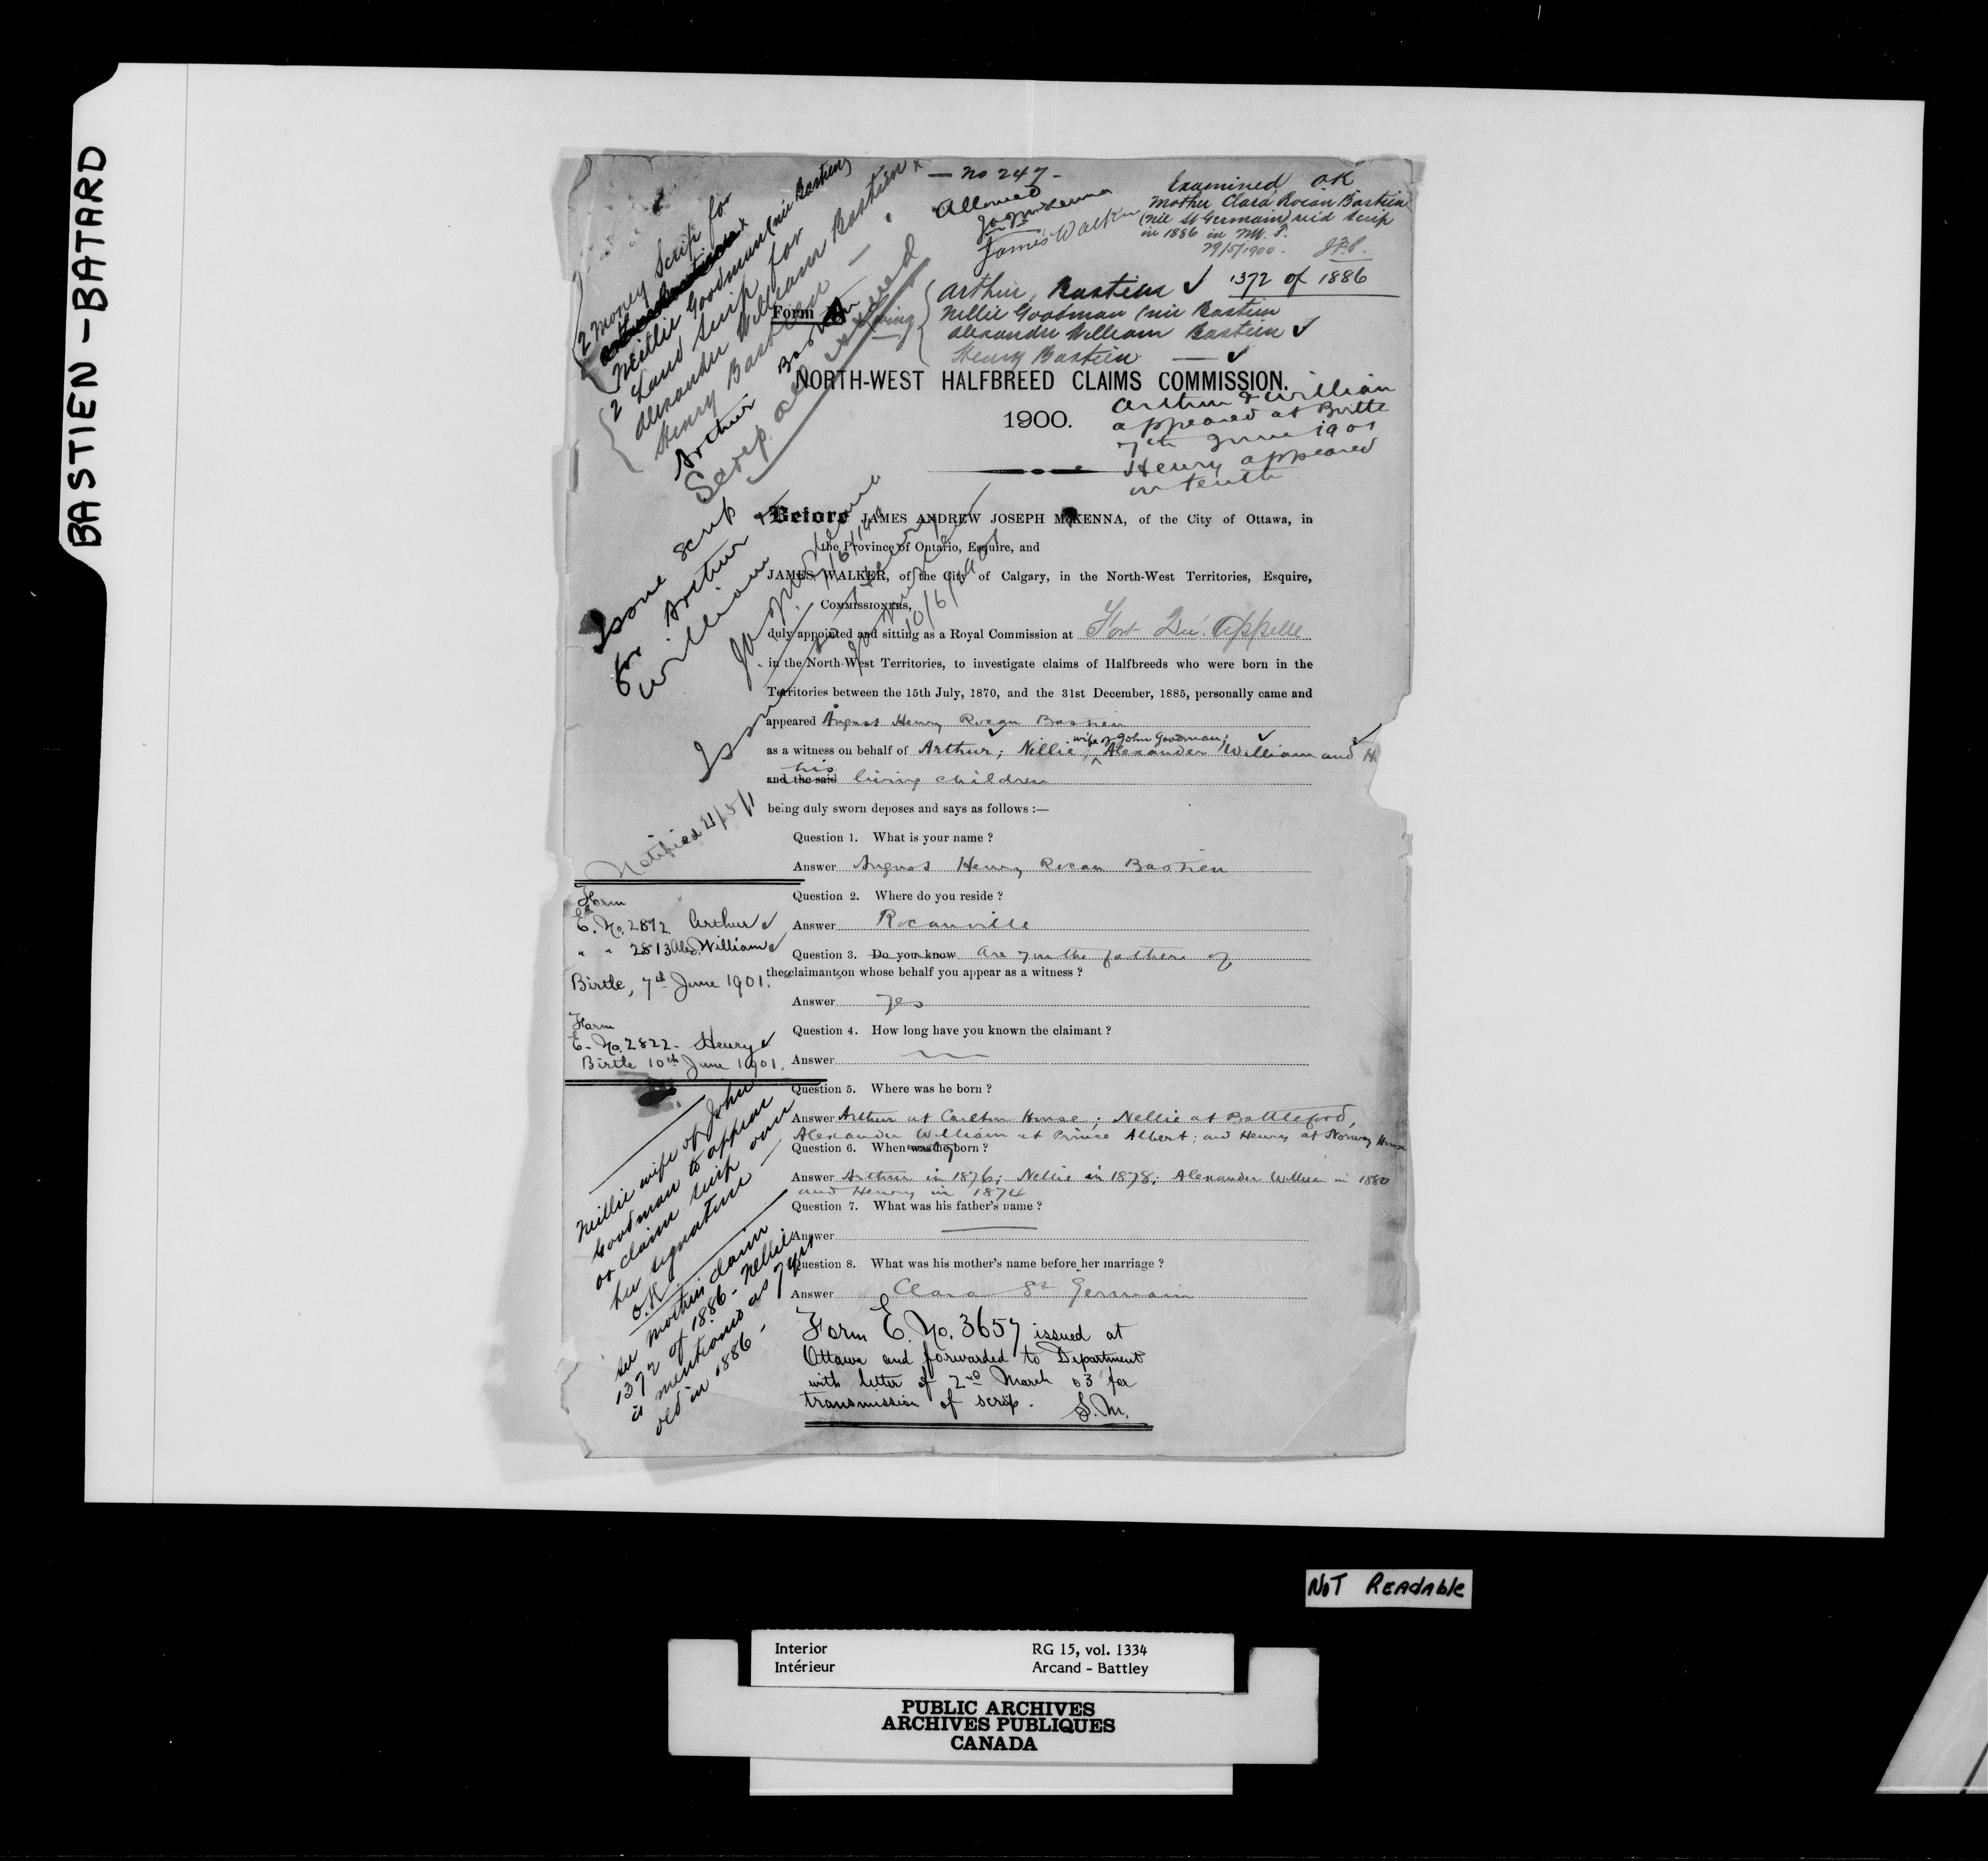 BASTIEN - BATARD
- No 247 -
Allowed
James Walker
Examined OK
Mother Clara Rocan Bastien
(née St Germain) rec'd scrip
in 1886 in N.W.T.
29/5/1900. J.F.P.
1372 of 1886
2 Money Scrip for
Nellie Goodman (née Bastien)
2 Land Scrip for
Alexander William Bastien x
Henry Bastien -
Arthur Bastien
Scrip all issued
Form
living
Arthur Bastien ✓
Nellie Goodman (née Bastien
Alexander William Bastien ✓
Henry Bastien - ✓
NORTH-WEST HALFBREED CLAIMS COMMISSION.
1900.
Arthur & William
appeared at Birtle
7th June 1901
Henry appeared
on tenth
Issue scrip
for Arthur &
William
Before JAMES ANDREW JOSEPH McKENNA, of the City of Ottawa, in
the Province of Ontario, Esquire, and
JAMES WALKER, of the City of Calgary, in the North-West Territories, Esquire,
COMMISSIONERS,
10/6/1901
duly appointed and sitting as a Royal Commission at Fort Qu'Appelle
in the North-West Territories, to investigate claims of Halfbreeds who were born in the
Territories between the 15th July, 1870, and the 31st December, 1885, personally came and
appeared Angus Henry Rocan Bastien
wife of John Goodman;
as a witness on behalf of Arthur; Nellie, Alexander William and H
his
and the said living children
being duly sworn deposes and says as follows :—
Notified
Question 1. What is your name ?
Answer Angus Henry Rocan Bastien
Question 2. Where do you reside ?
Answer Rocanville
Question 3. Do you know Are you the father of
the claimants on whose behalf you appear as a witness ?
Answer Yes
Question 4. How long have you known the claimant ?
Answer
Question 5. Where was he born ?
Answer Arthur at Carlton House; Nellie at Battleford,
Alexander William at Prince Albert; and Henry at Norway House
Question 6. When was he born ?
Answer Arthur in 1876; Nellie in 1878; Alexander William in 1880
and Henry in 1874
Question 7. What was his father's name ?
Answer
Question 8. What was his mother's name before her marriage ?
Answer Clara St Germain
Form
E. No. 2812 Arthur ✓
" " 2813 Alex. William ✓
Birtle, 7th June 1901.
Form
E. No. 2822 - Henry ✓
Birtle 10th June 1901.
Nellie wife of John
Goodman to appear
or claim scrip over
her signature -
O.K.
See mother's claim
1372 of 1886 - Nellie
is mentioned as 7 yrs
old in 1886 -
Form E. No. 3657 issued at
Ottawa and forwarded to Department
with letter of 2nd March 03 for
transmission of scrip. S.M.
NOT READABLE
Interior RG 15, vol. 1334
Intérieur Arcand - Battley
PUBLIC ARCHIVES
ARCHIVES PUBLIQUES
CANADA